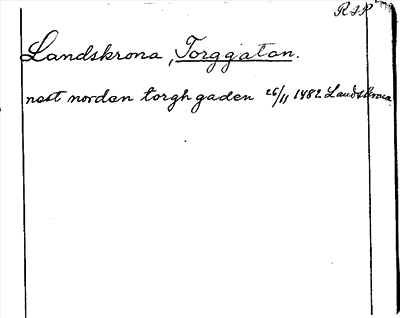 RSP
Landskrona, Torggatan.
nest norden torgh gaden 26/11 1482 Landskrona